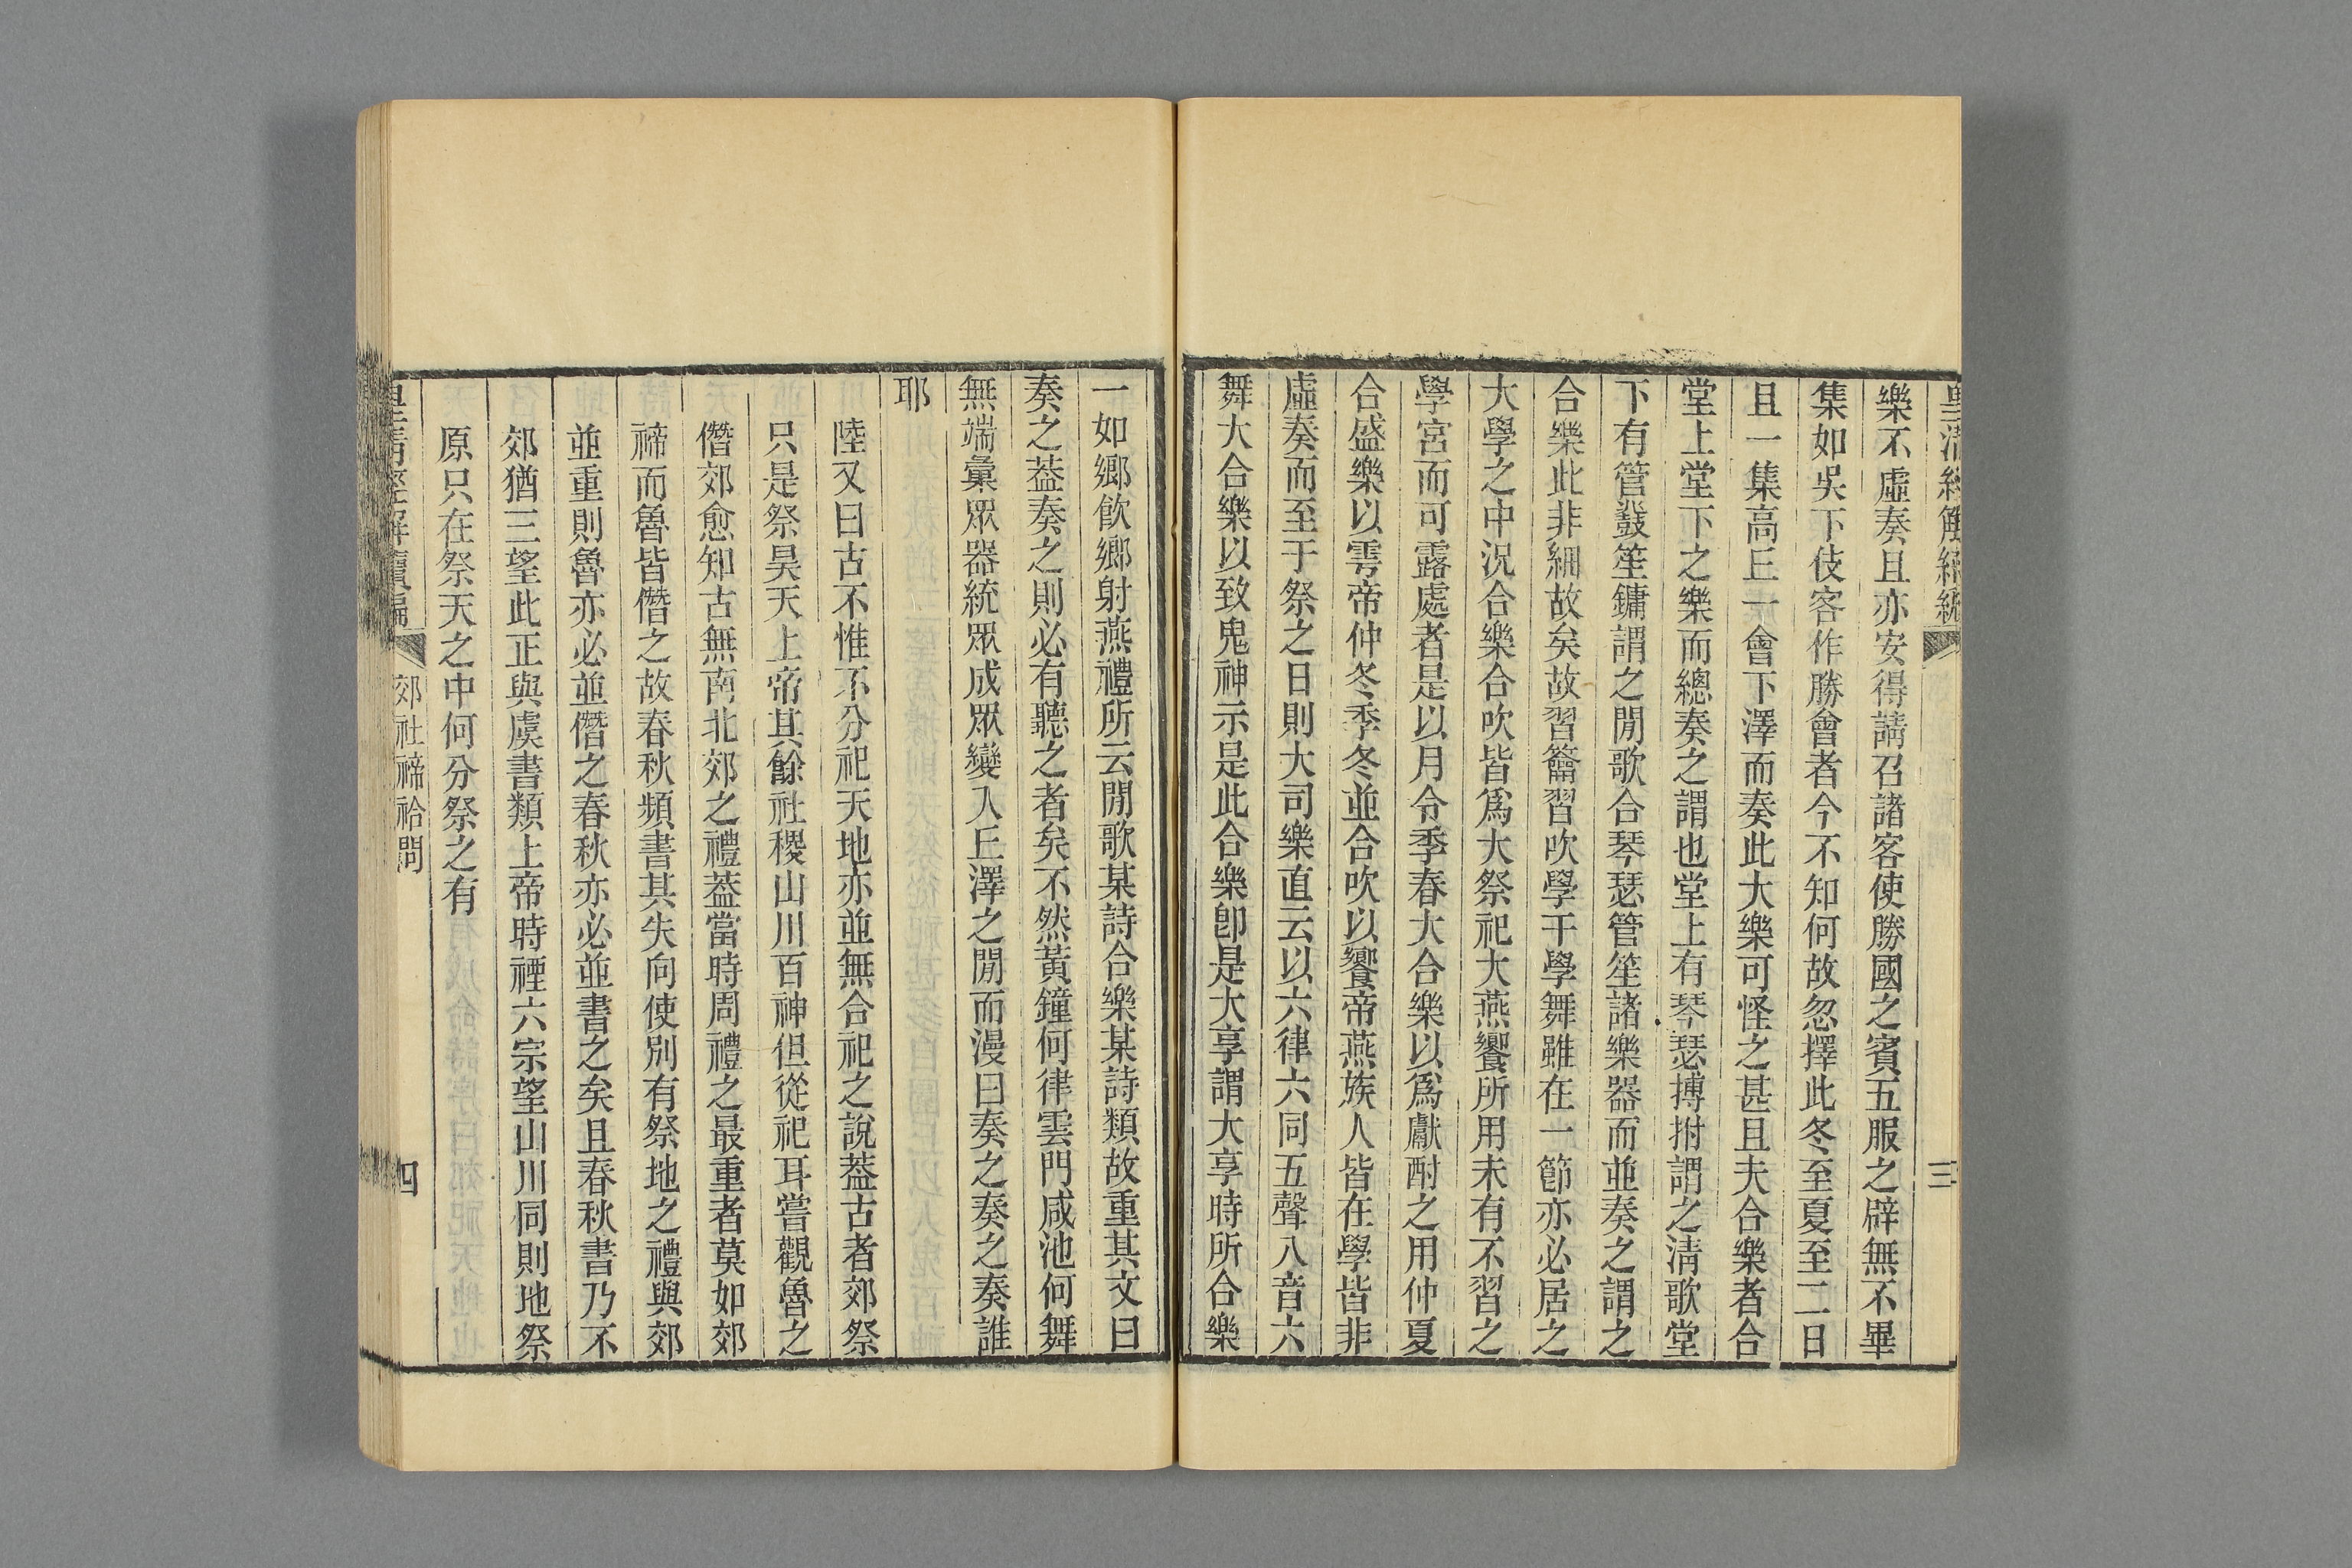 樂不虛奏且亦安得請召諸客使勝國之賓五服之辟無不畢
集如吳下伎客作勝會者今不知何故忽擇此冬至夏至二日
且一集高丘一會下澤而奏此大樂可怪之甚且夫合樂者合
堂上堂下之樂而總奏之謂也堂上有琴瑟搏拊謂之淸歌堂
下有管鼗笙鏞謂之閒歌合琴瑟管笙諸樂器而並奏之謂之
合樂此非細故矣故習籥習吹學干學舞雖在一節亦必居之
大學之中況合樂合吹皆爲大祭祀大燕饗所用未有不習之
學宮而可露處者是以月令季春大合樂以爲獻酎之用仲夏
合盛樂以雩帝仲冬季冬並合吹以饗帝燕族人皆在學皆非
虛奏而至于祭之日則大司樂直云以六律六同五聲八音六
舞大合樂以致鬼神示是此合樂卽是大享謂大享時所合樂
三
一如鄉飮鄉射燕禮所云閒歌某詩合樂某詩類故重其文曰
奏之葢奏之則必有聽之者矣不然黃鐘何律雲門咸池何舞
無端彙眾器統眾成眾變入丘澤之閒而漫曰奏之奏之奏誰
耶
陸又曰古不惟不分祀天地亦並無合祀之說葢古者郊祭
只是祭昊天上帝其餘社稷山川百神但從祀耳嘗觀魯之
僭郊愈知古無南北郊之禮葢當時周禮之最重者莫如郊
禘而魯皆僭之故春秋頻書其失向使別有祭地之禮與郊
並重則魯亦必並僭之春秋亦必並書之矣且春秋書乃不
郊猶三望此正與虞書類上帝時禋六宗望山川同則地祭
原只在祭天之中何分祭之有
皇淸經解續編
郊社禘祫問
四